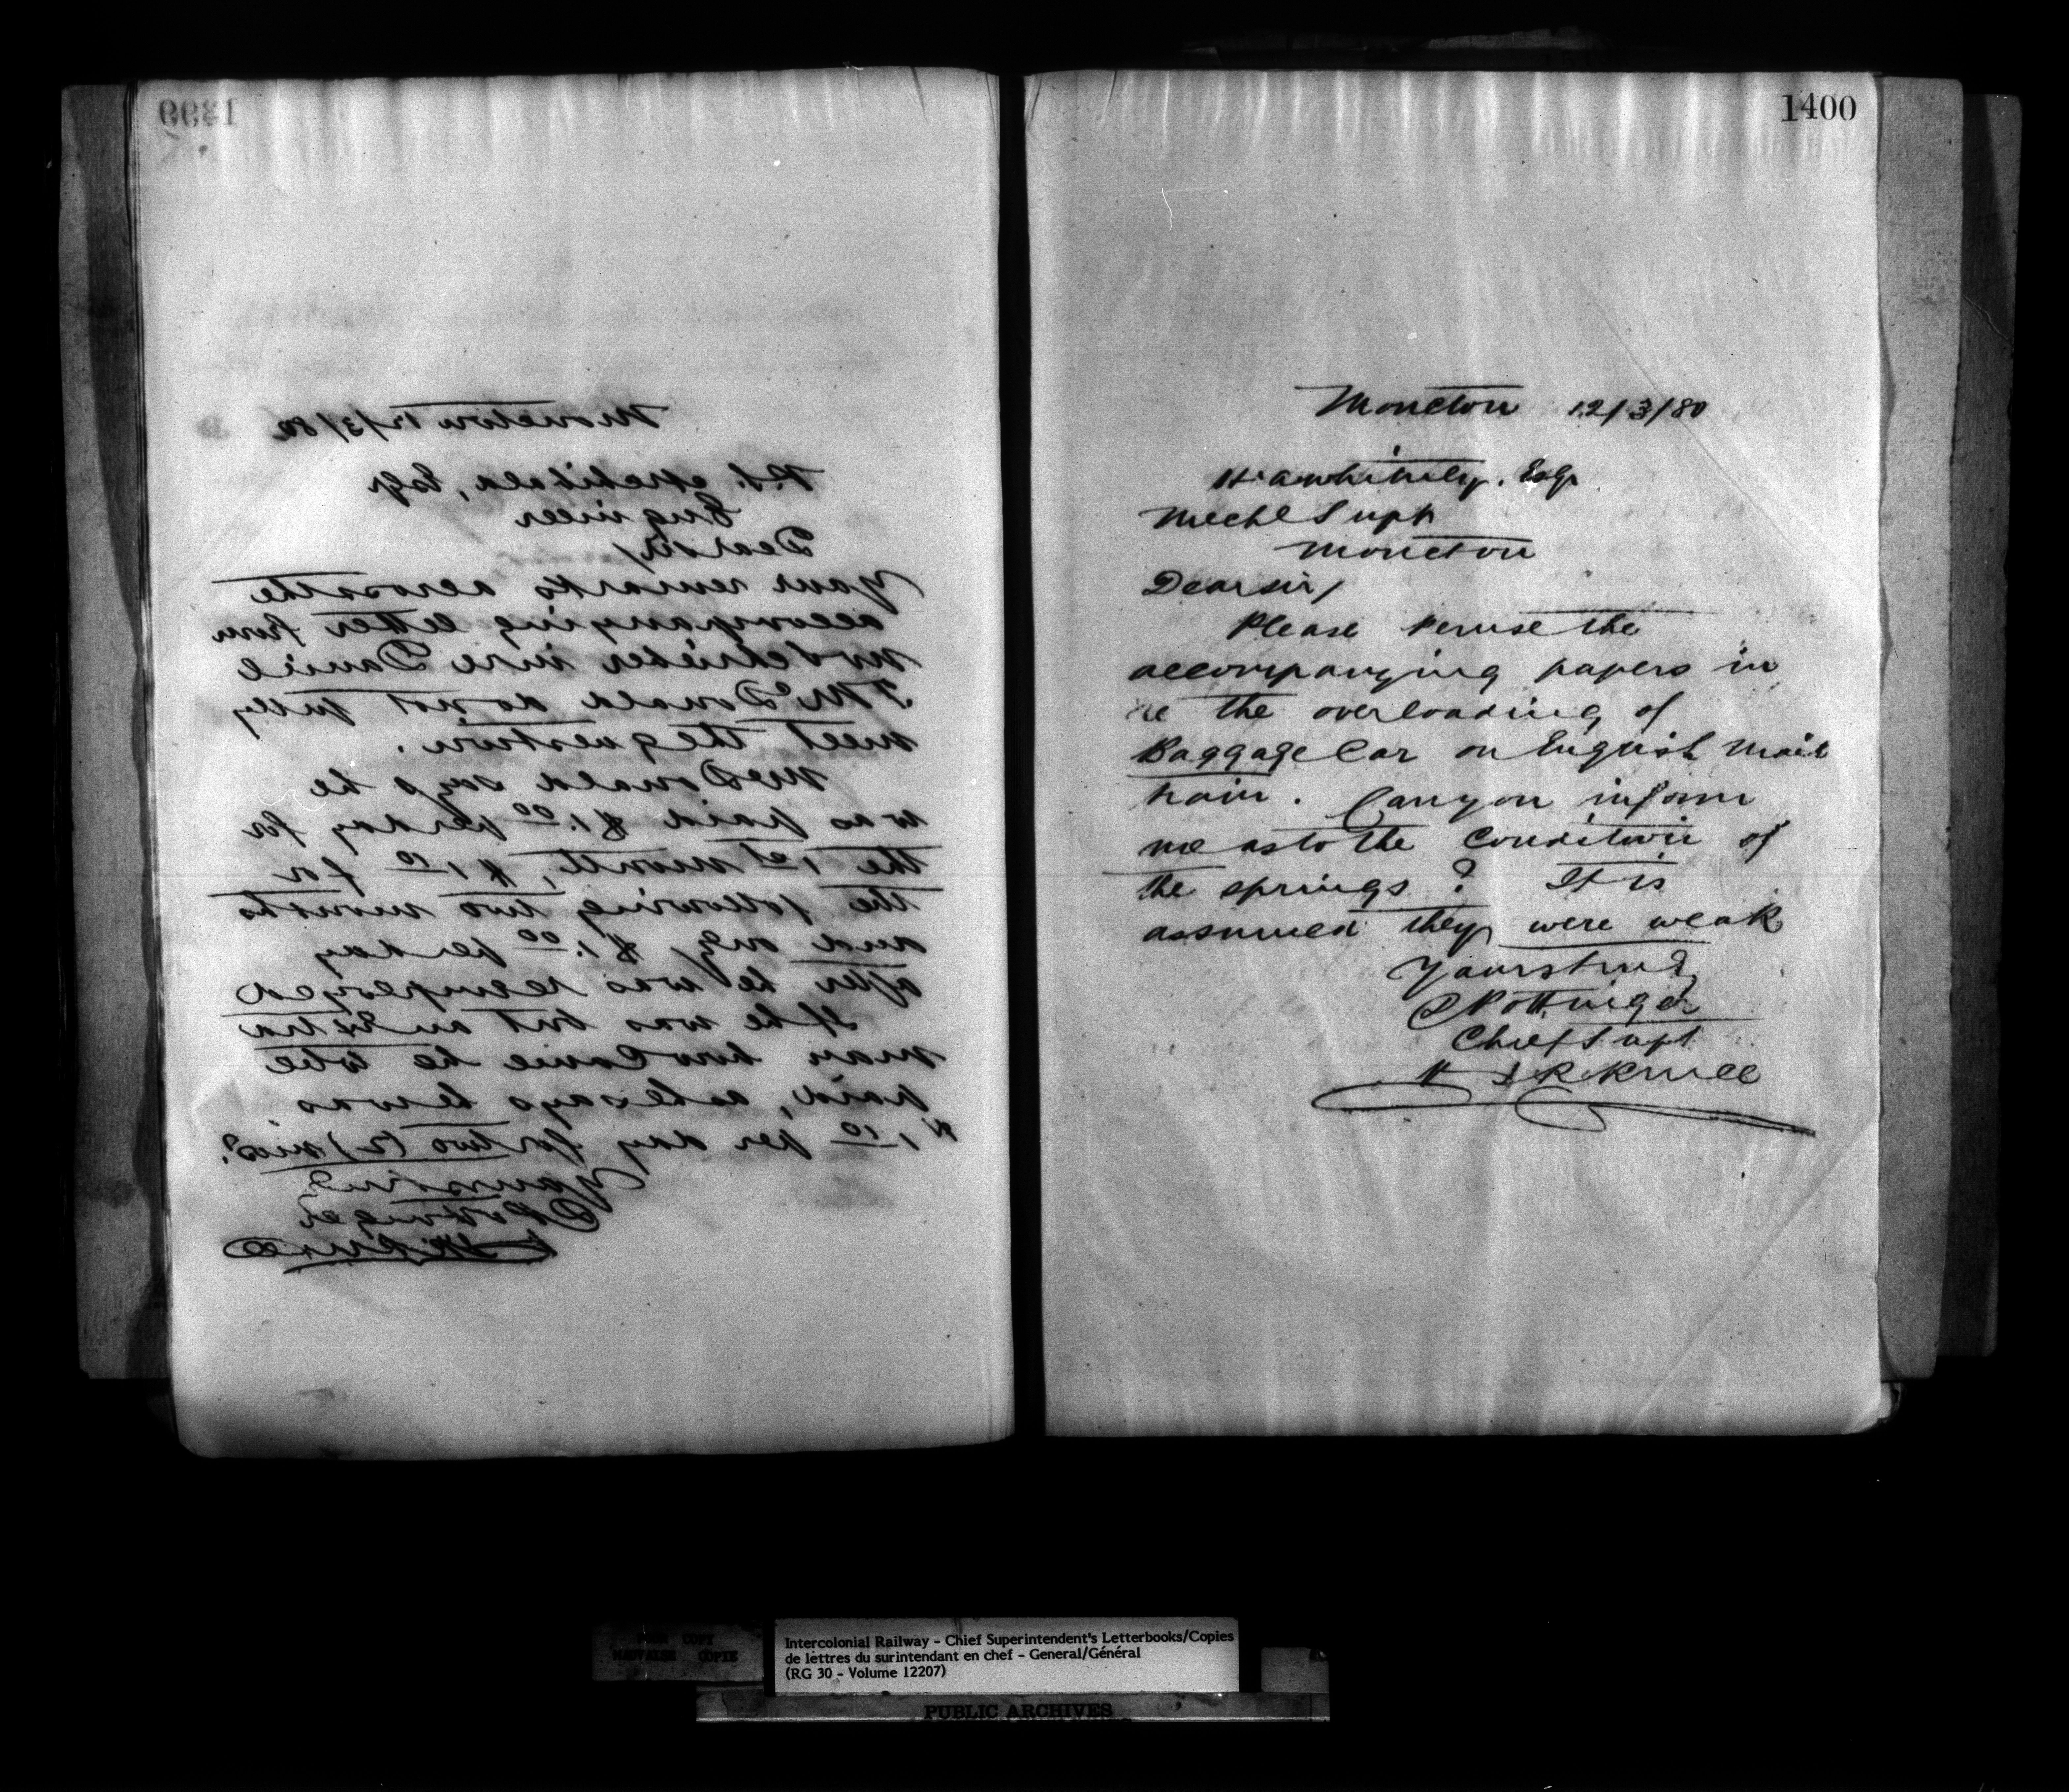 1399
Moncton 12/3/80
P.S. Archibald, Esqr
Engineer
Dear sir,
Your remarks across the
accompanying letter from
Mr Schrieber in re Daniel
J McDonald do not fully
meet the question.
McDonald says he
was paid $1.00 per day for
the 1st month, $1.10 for
the following two months
and only $1.00 per day
after he was reemployed
If he was but an Extra
man how Came he to be
paid, as he says he was
$1.10 per day for two (2) mos?
Yours truly
D Pottinger
1400
Moncton 12/3/80
H. A. Whitney. Esqr
Mechl Supt
Moncton
Dear sir,
Please Peruse the
accompanying papers in
re the overloading of
Baggage Car on English Mail
train. Can you inform
me as to the Condition of
the springs? It is
assumed they were weak
Yours truly
D Pottinger
Chief Supt
POOR COPY
MAUVAISE COPIE
Intercolonial Railway - Chief Superintendent's Letterbooks/Copies
de lettres du surintendant en chef - General/Général
(RG 30 - Volume 12207)
PUBLIC ARCHIVES